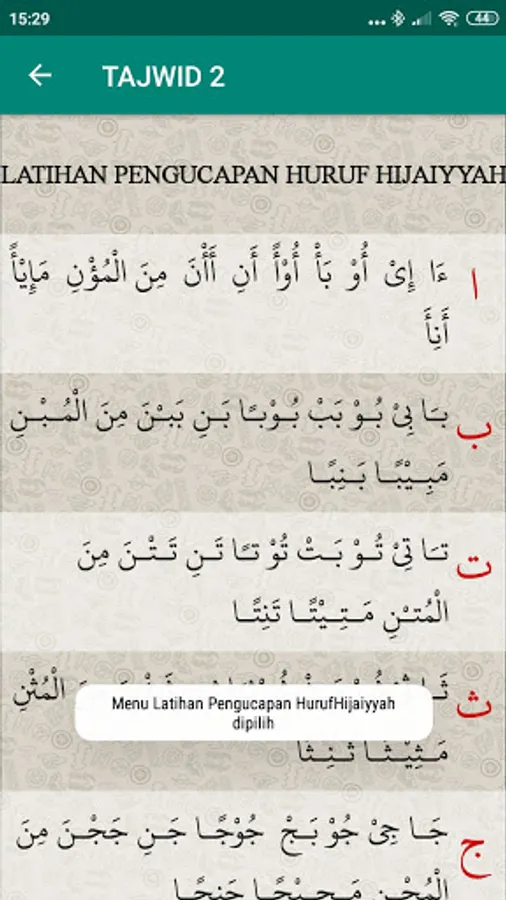 15:29
44
TAJWID 2
LATIHAN PENGUCAPAN HURUF HIJAIYYAH
ا
ءَا إِىْ أُوْ بَأْ أُوْأً أَنِ أَأْنَ مِنَ الْمُؤْنِ مَإِيْأً
أَنِأَ
ب
بَا بِىْ بُوْ بَبْ بُوْبًا بَنِ بَبْنَ مِنَ الْمُبْنِ
مَبِيْبًا بَنِبًا
ت
تَا تِىْ تُوْ بَتْ تُوْتًا تَنِ تَتْنَ مِنَ
الْمُتْنِ مَتِيْتًا تَنِتًا
ث
ثَا الْمُثْنِ
Menu Latihan Pengucapan HurufHijaiyyah
dipilih
مَثِيْثًا ثَنِثًا
ج
جَا جِىْ جُوْ بَجْ جُوْجًا جَنِ جَجْنَ مِنَ
الْمُجْنِ مَجِيْجًا جَنِجًا